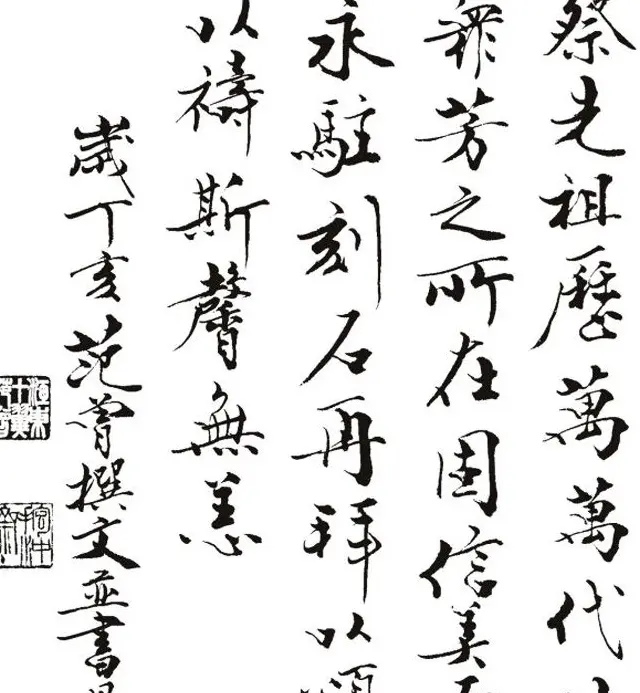 祭先祖歷萬萬代
衆芳之所在固信美
永駐刻石再拜以頌
以禱斯馨無恙
歲丁亥范曾撰文並書